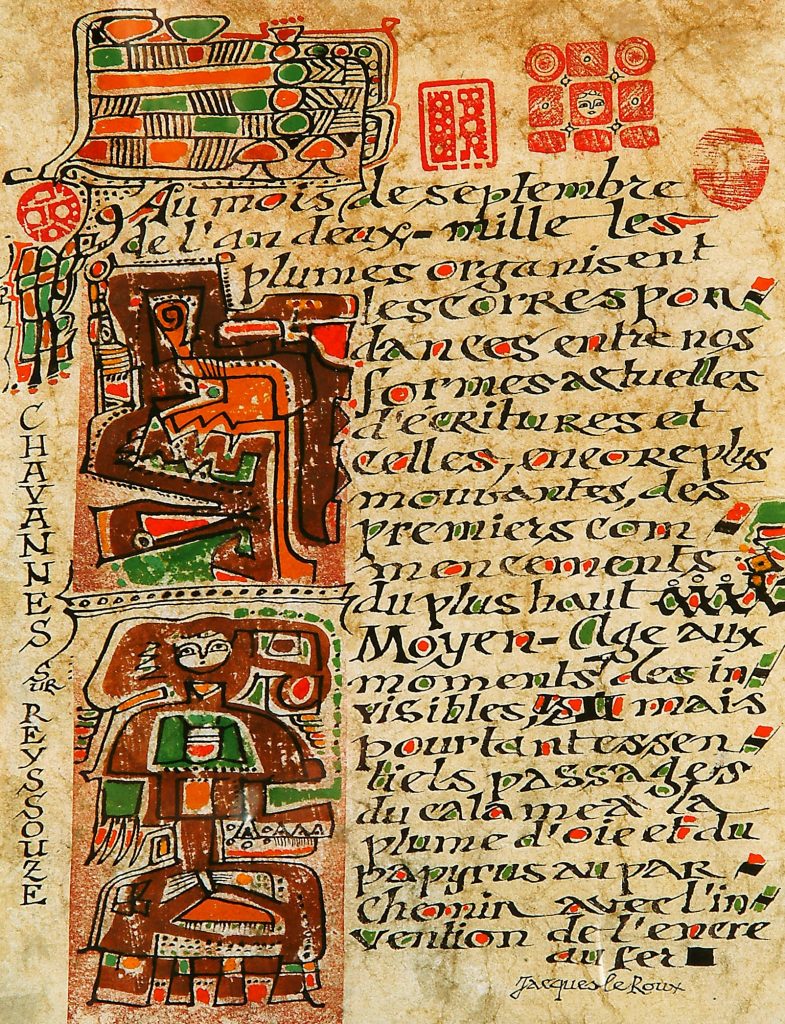 Au mois de septembre
de l'an deux-mille les
plumes organisent
les correspon
dances entre nos
formes actuelles
d'écritures et
celles, encore plus
mouvantes, des
premiers com
mencements
du plus haut
Moyen-Age aux
moments des in
visibles, mais
pourtant essen
tiels passages
du calame à la
plume d'oie et du
papyrus au par
chemin avec l'in
vention de l'encre
au fer
Jacques le Roux
CHAVANNES SUR REYSSOUZE